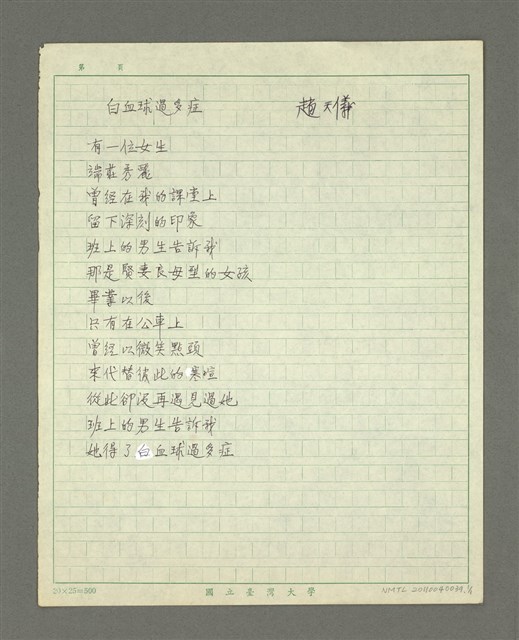 第 頁
白血球過多症 趙天儀
有一位女生
端莊秀麗
曾經在我的課堂上
留下深刻的印象
班上的男生告訴我
那是賢妻良母型的女孩
畢業以後
只有在公車上
曾經以微笑點頭
來代替彼此的寒喧
從此卻沒再遇見過她
班上的男生告訴我
她得了白血球過多症
20×25=500 國立臺灣大學 NMTL 20110040039